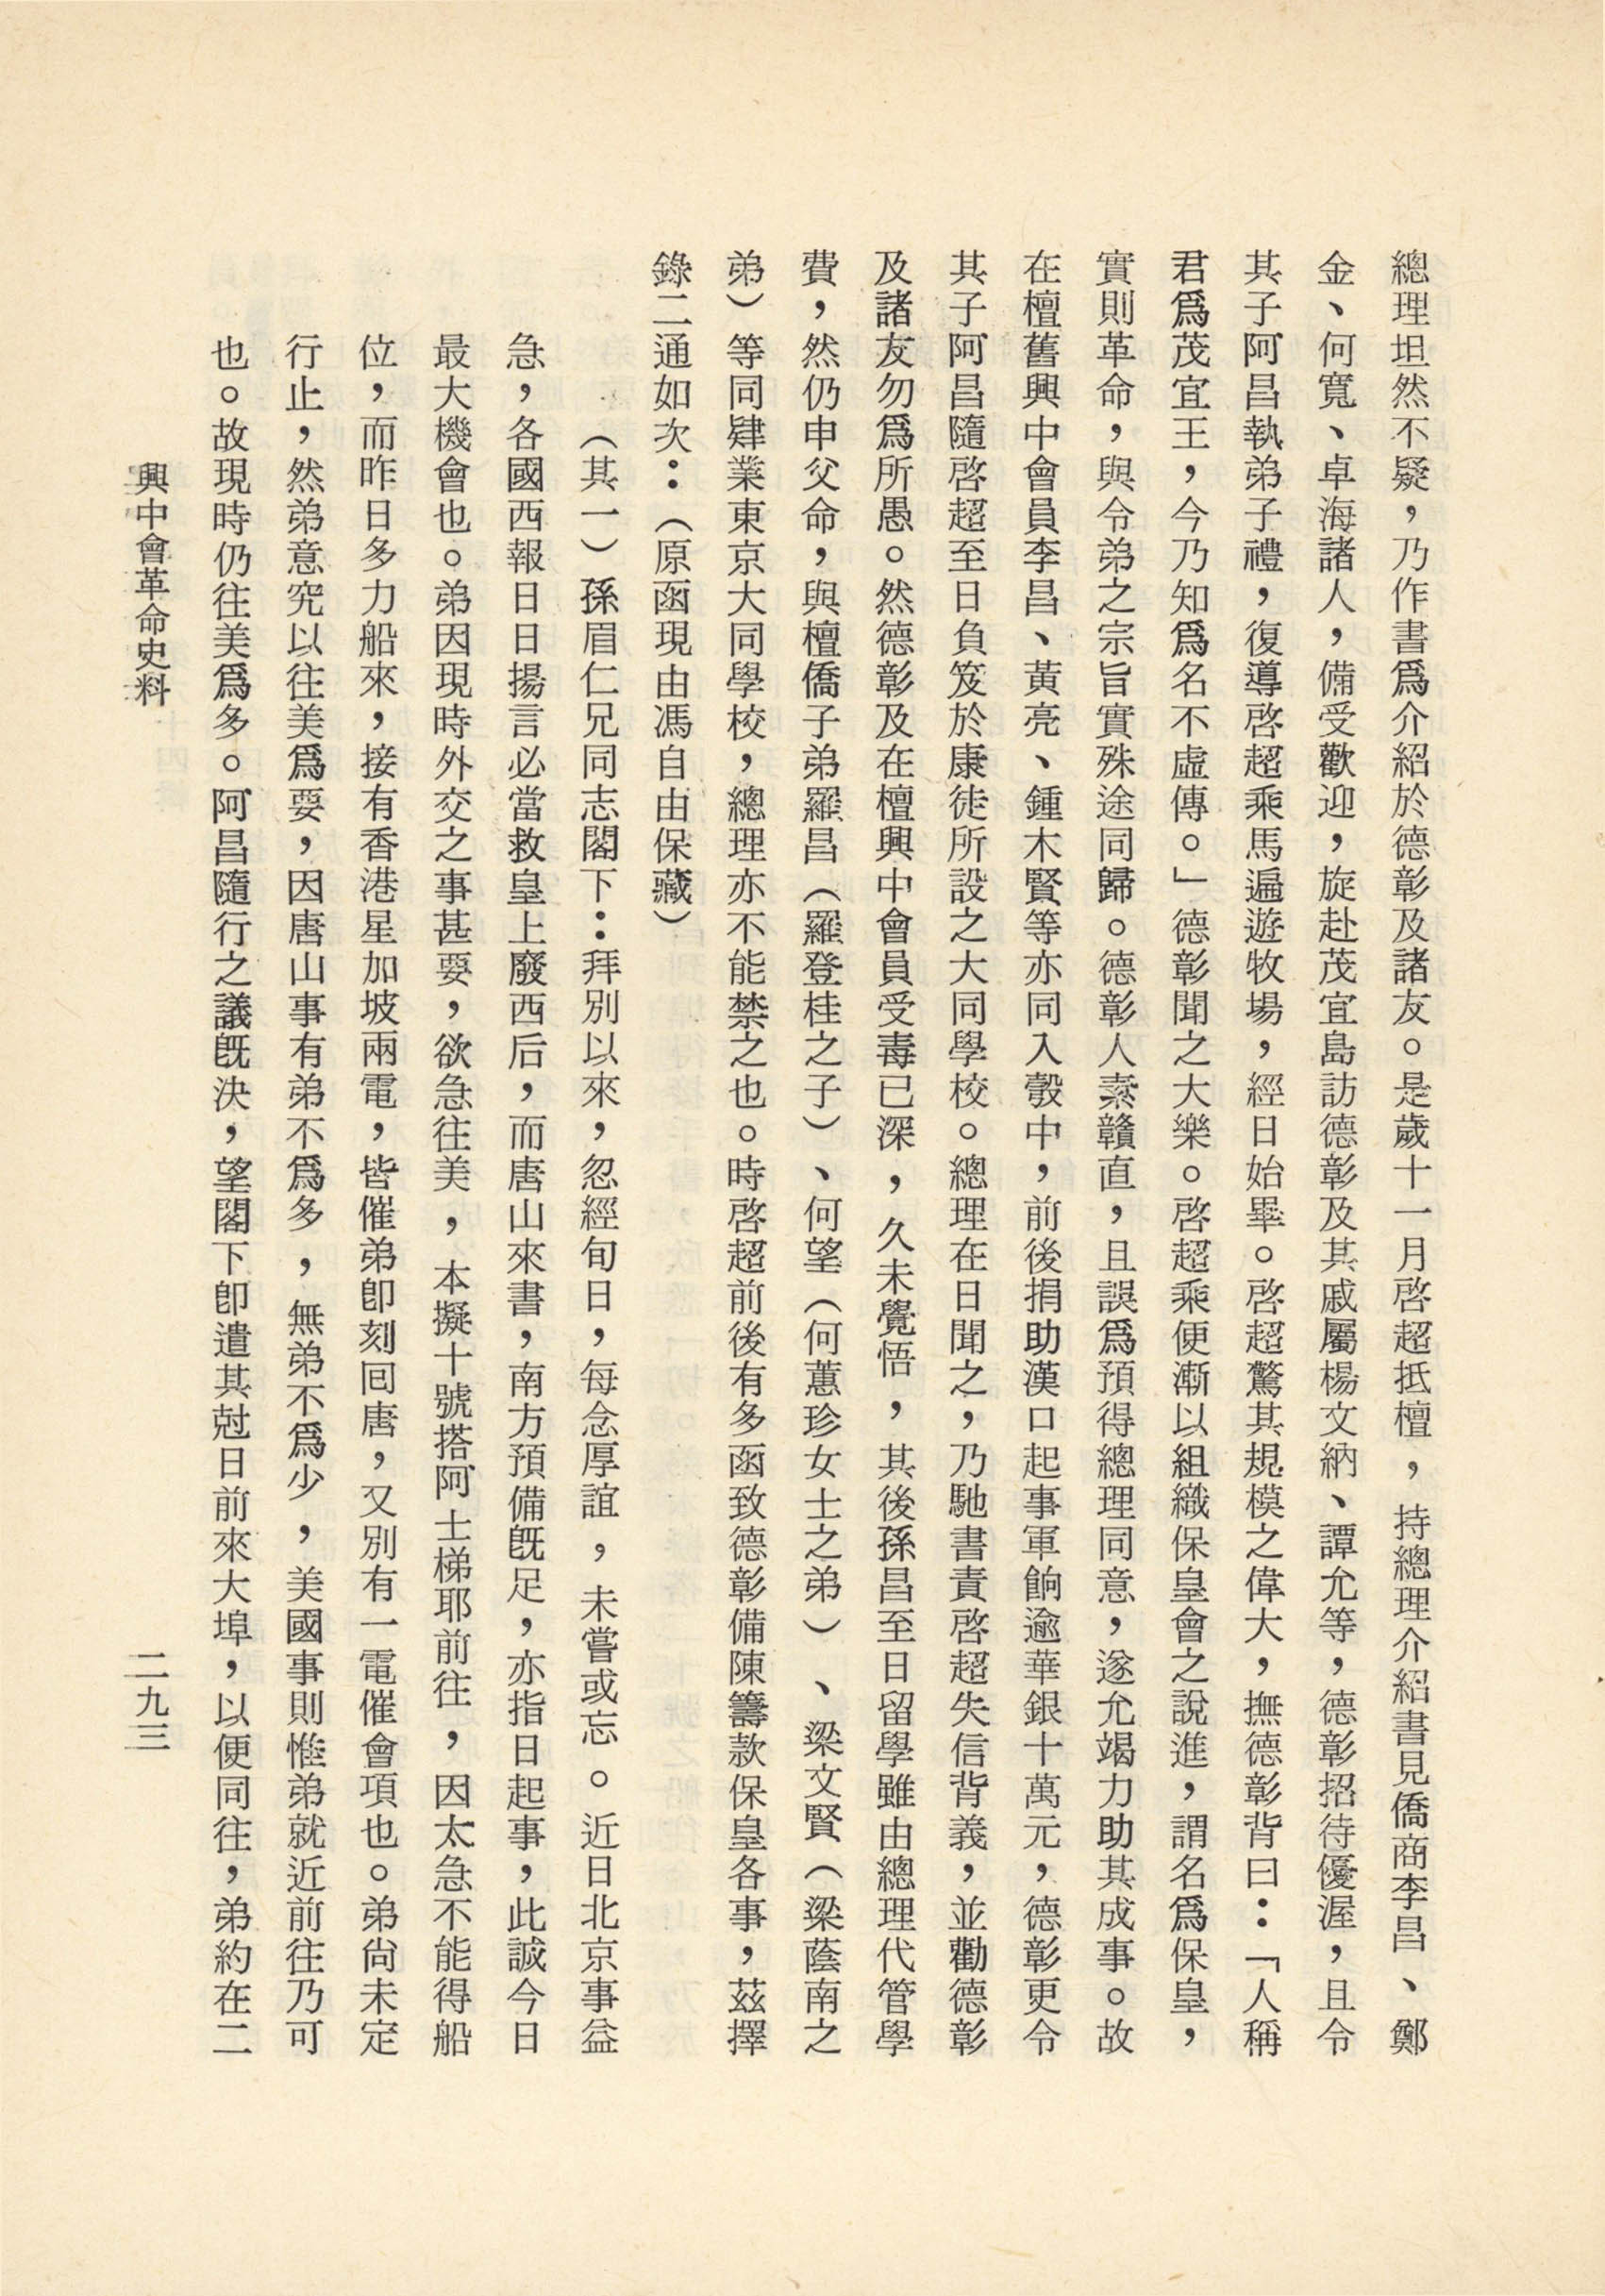 總理坦然不疑，乃作書爲介紹於德彰及諸友。是歲十一月啓超抵檀，持總理介紹書見僑商李昌、鄭
金、何寬、卓海諸人，備受歡迎，旋赴茂宜島訪德彰及其戚屬楊文納、譚允等，德彰招待優渥，且令
其子阿昌執弟子禮，復導啓超乘馬遍遊牧場，經日始畢。啓超驚其規模之偉大，撫德彰背曰：「人稱
君爲茂宜王，今乃知爲名不虛傳。」德彰聞之大樂。啓超乘便漸以組織保皇會之說進，謂名爲保皇，
實則革命，與令弟之宗旨實殊途同歸。德彰人素贛直，且誤爲預得總理同意，遂允竭力助其成事。故
在檀舊興中會員李昌、黃亮、鍾木賢等亦同入彀中，前後捐助漢口起事軍餉逾華銀十萬元，德彰更令
其子阿昌隨啓超至日負笈於康徒所設之大同學校。總理在日聞之，乃馳書責啓超失信背義，並勸德彰
及諸友勿爲所愚。然德彰及在檀興中會員受毒已深，久未覺悟，其後孫昌至日留學雖由總理代管學
費，然仍申父命，與檀僑子弟羅昌（羅登桂之子）、何望（何蕙珍女士之弟）、梁文賢（梁蔭南之
弟）等同肄業東京大同學校，總理亦不能禁之也。時啓超前後有多函致德彰備陳籌款保皇各事，茲擇
錄二通如次：（原函現由馮自由保藏）
（其一）孫眉仁兄同志閣下：拜別以來，忽經旬日，每念厚誼，未嘗或忘。近日北京事益
急，各國西報日日揚言必當救皇上廢西后，而唐山來書，南方預備旣足，亦指日起事，此誠今日
最大機會也。弟因現時外交之事甚要，欲急往美，本擬十號搭阿士梯耶前往，因太急不能得船
位，而昨日多力船來，接有香港星加坡兩電，皆催弟卽刻囘唐，又別有一電催會項也。弟尙未定
行止，然弟意究以往美爲要，因唐山事有弟不爲多，無弟不爲少，美國事則惟弟就近前往乃可
也。故現時仍往美爲多。阿昌隨行之議旣決，望閣下卽遣其尅日前來大埠，以便同往，弟約在二
興中會革命史料
二九三